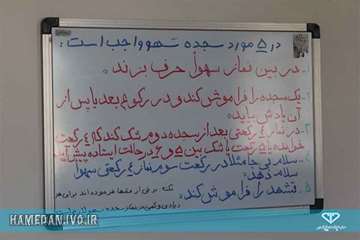 در ۵ مورد سجده سهو واجب است:
۱- در بین نماز سهواً حرف بزند.
۲- یک سجده را فراموش کند و در رکوع بعد یا پس از
آن یادش بیاید.
۳- در نماز ۴ رکعتی بعد از سجده دوم شک کند که ۴ رکعت
خوانده یا ۵ رکعت یا شک بین ۵ و ۶ در حالت ایستاده پیش آید
۴- سلام بی جا مثلا در رکعت سوم نماز ۴ رکعتی سهوا
سلام دهد.
۵- تشهد را فراموش کند.
نکته برخی از فقها فرموده اند برای هر
HAMEDAN.IVO.IR